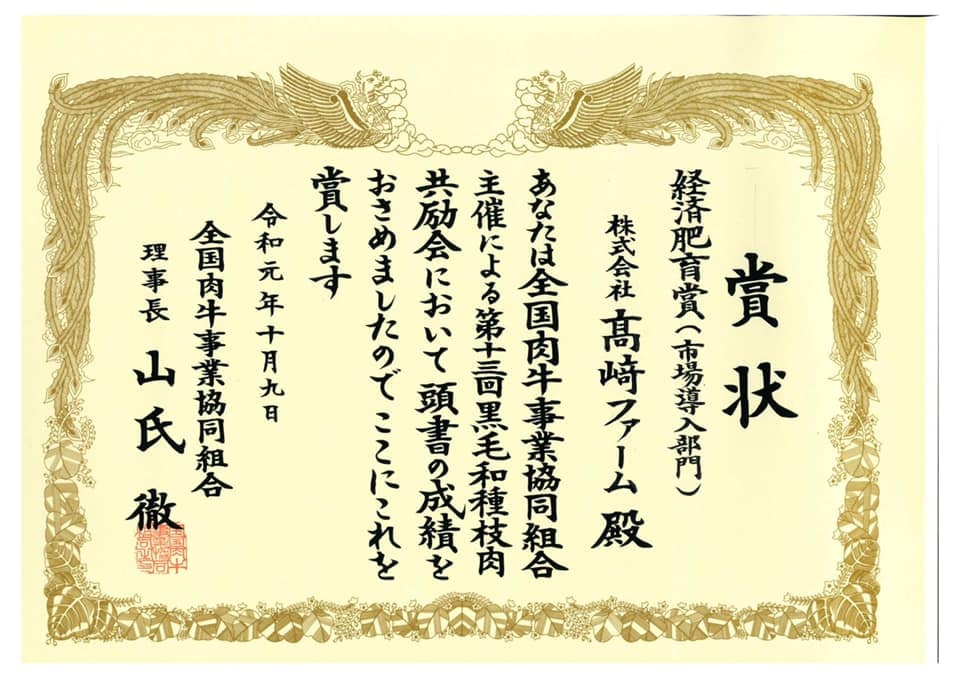 賞状
経済肥育賞(市場導入部門)
株式会社 髙﨑ファーム 殿
あなたは全国肉牛事業協同組合
主催による第十三回黒毛和種枝肉
共励会において頭書の成績を
おさめましたのでここにこれを
賞します
令和元年十月九日
全国肉牛事業協同組合
理事長 山氏 徹